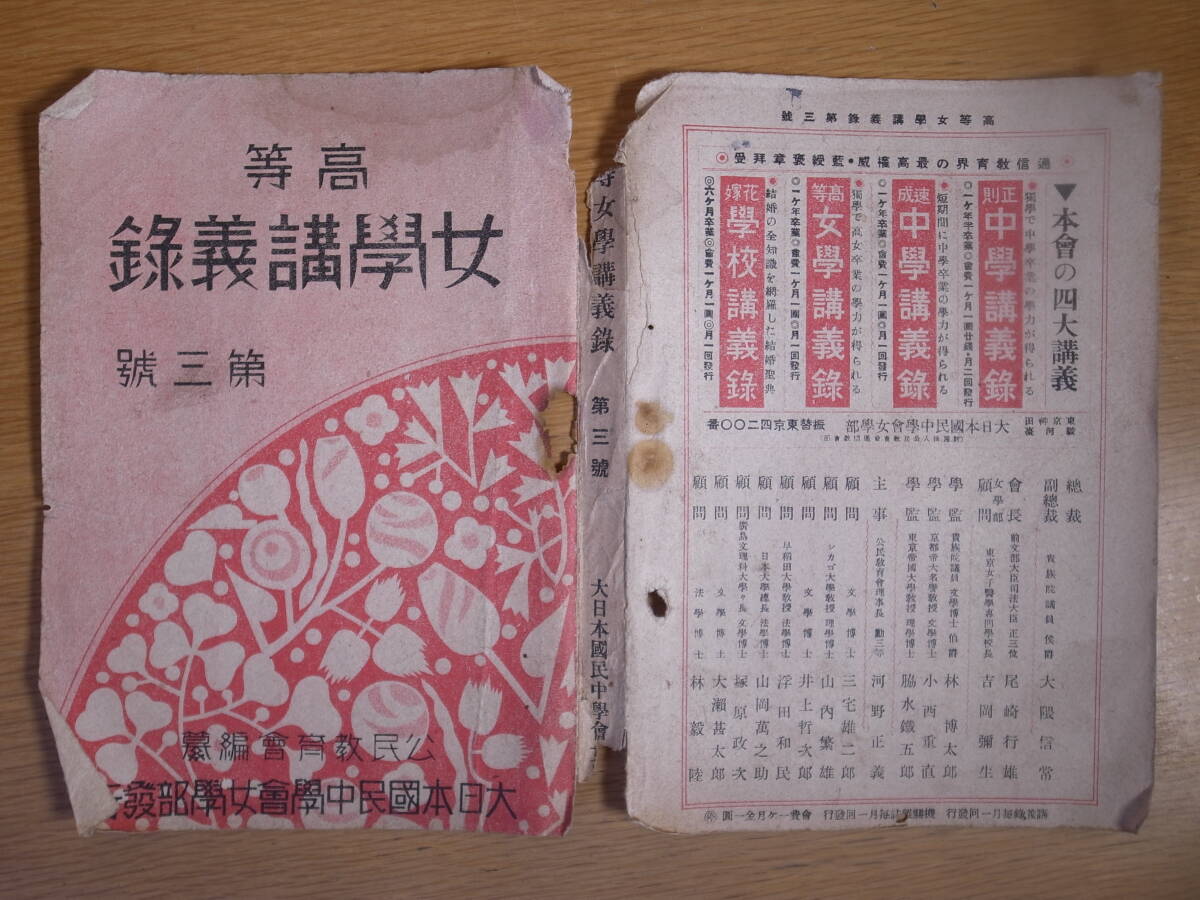 高等
女學講義錄
第三號
公民敎育會編纂
大日本國民中學會女學部發行
等女學講義錄 第三號 大日本國民中學會
高等女學講義錄第三號
通信敎育界の最高權威・藍綬褒章拜受
▼本會の四大講義
正則
中學講義錄
獨學で中學卒業の學力が得られる
◎一ケ年半卒業◎會費一ケ月一圓廿錢・月二回發行
速成
中學講義錄
短期間に中學卒業の學力が得られる
◎一ケ年卒業◎會費一ケ月一圓◎月一回發行
高等
女學講義錄
獨學で高女卒業の學力が得られる
◎一ケ年卒業◎會費一ケ月一圓◎月一回發行
花嫁
學校講義錄
結婚の全知識を網羅した結婚聖典
◎六ケ月卒業◎會費一ケ月一圓◎月一回發行
東京神田駿河臺
大日本國民中學會女學部
振替東京四二〇〇番
總裁
副總裁 貴族院議員 侯爵 大隈信常
會長 前文部大臣司法大臣 正三位 尾崎行雄
女學部顧問 東京女子醫學專門學校長 吉岡彌生
學監 貴族院議員 文學博士 伯爵 林博太郎
學監 京都帝大名譽敎授 文學博士 小西重直
學監 東京帝國大學敎授 理學博士 脇水鐵五郎
主事 公民敎育會理事長 勳三等 河野正義
顧問 文學博士 三宅雄二郎
顧問 シカゴ大學敎授 理學博士 山內繁雄
顧問 文學博士 井上哲次郎
顧問 早稻田大學敎授 法學博士 浮田和民
顧問 日本大學總長 法學博士 山岡萬之助
顧問 廣島文理科大學々長 文學博士 塚原政次
顧問 文學博士 大瀨甚太郎
顧問 法學博士 林毅陸
講義錄每月一回發行 機關雜誌每月一回發行 會費一ケ月金一圓